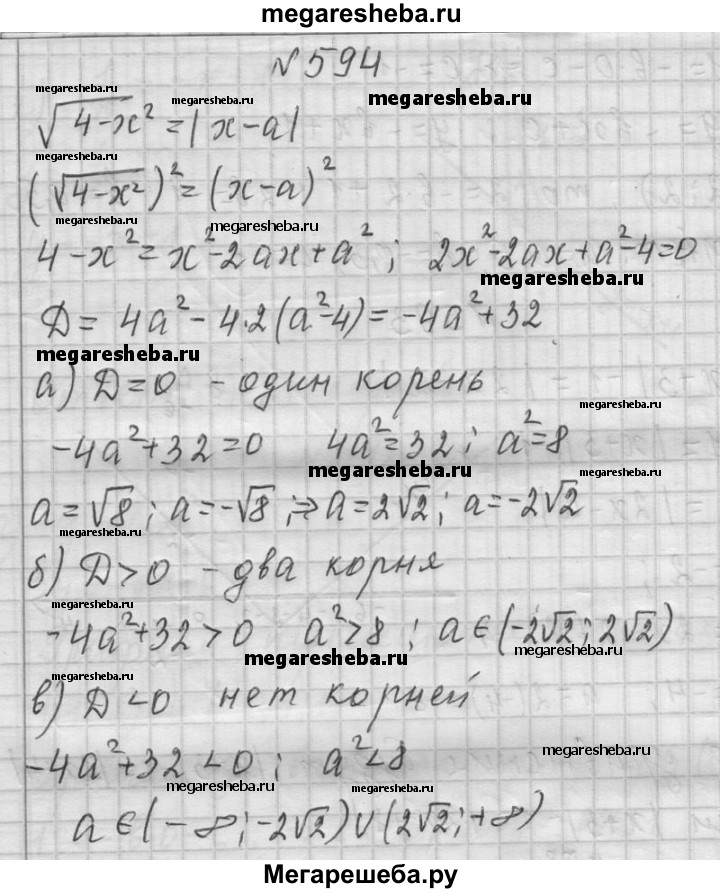 megaresheba.ru
№594
megaresheba.ru megaresheba.ru megaresheba.ru
√4-x² = |x-a|
megaresheba.ru
(√4-x²)² = (x-a)²
megaresheba.ru megaresheba.ru
4-x² = x²-2ax+a² ; 2x²-2ax+a²-4=0
megaresheba.ru
Д = 4a² - 4·2(a²-4) = -4a²+32
megaresheba.ru
а) Д=0 - один корень
megaresheba.ru
-4a²+32=0 4a²=32; a²=8
megaresheba.ru
a=√8; a=-√8; ⇒ a=2√2; a=-2√2
megaresheba.ru
б) Д>0 - два корня
megaresheba.ru
-4a²+32>0 a²>8 ; a∈(-2√2; 2√2)
megaresheba.ru megaresheba.ru
megaresheba.ru
в) Д<0 нет корней
megaresheba.ru
-4a²+32<0; a²<8
megaresheba.ru megaresheba.ru
a∈(-∞;-2√2)∪(2√2;+∞)
Мегарешеба.ру